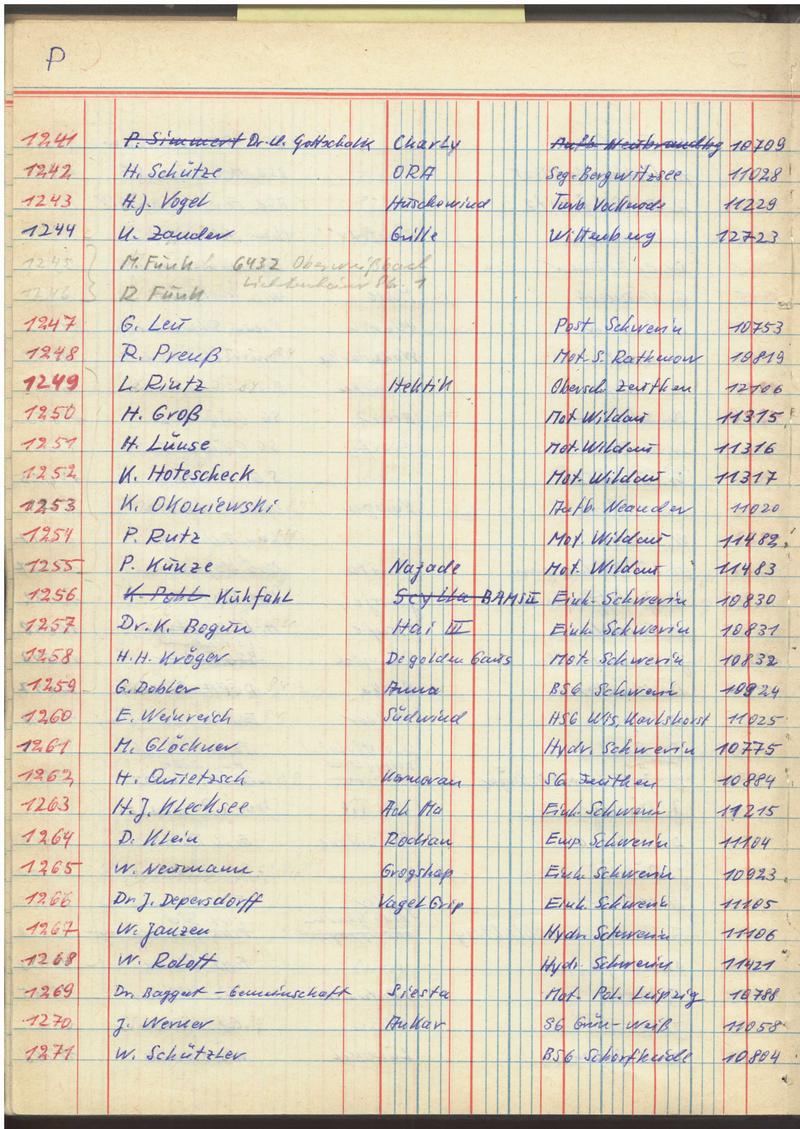 P
1241 P. Simmert Dr. U. Gottschalk Charly Aufb. Neubrandbg 10709
1242 H. Schütze ORA Seg. Bergwitzsee 11028
1243 H.J. Vogel Huschewind Turb. Vockrode 11229
1244 U. Zander Grille Wittenberg 12723
1245 M. Funk 6432 Oberweißbach
1246 R. Funk Lichtenhainer Str. 1
1247 G. Leu Post Schwerin 10753
1248 R. Preuß Mot. S. Rathenow 10819
1249 L. Rintz Hektik Obersch Zeuthen 12106
1250 H. Groß Mot. Wildau 11315
1251 H. Lünse Mot. Wildau 11316
1252 K. Hotescheck Mot. Wildau 11317
1253 K. Okoniewski Aufb. 11020
1254 P. Rutz Mot. Wildau 11482
1255 P. Kunze Najade Mot. Wildau 11483
1256 K. Pohl Kuhfahl Scylla BAMSII Einh. Schwerin 10830
1257 Dr. K. Bogun Hai III Einh. Schwerin 10831
1258 H.H. Kröger De golden Gaus Mot. Schwerin 10832
1259 G. Dobler Anna BSG Schwerin 10924
1260 E. Weinreich Südwind HSG Wis, Karlshorst 11025
1261 M. Glöckner Hydr. Schwerin 10775
1262 H. Quietzsch Kormoran SG Zeuthen 10884
1263 H.J. Klecksee Ach Ma Einh. Schwerin 11215
1264 D. Klein Emp Schwerin 11104
1265 W. Neumann Grogshop Einh. Schwerin 10923
1266 Dr. J. Depersdorff Vagel Grip Einh. Schwerin 11105
1267 W. Janzen Hydr. Schwerin 11106
1268 W. Roloff Hydr. Schwerin 11421
1269 Dr. Baggert - Gemeinschaft Siesta Mot. Pol. Leipzig 10788
1270 J. Werner Ankar SG Grün-Weiß 11058
1271 W. Schützler BSG Schorfheide 10804